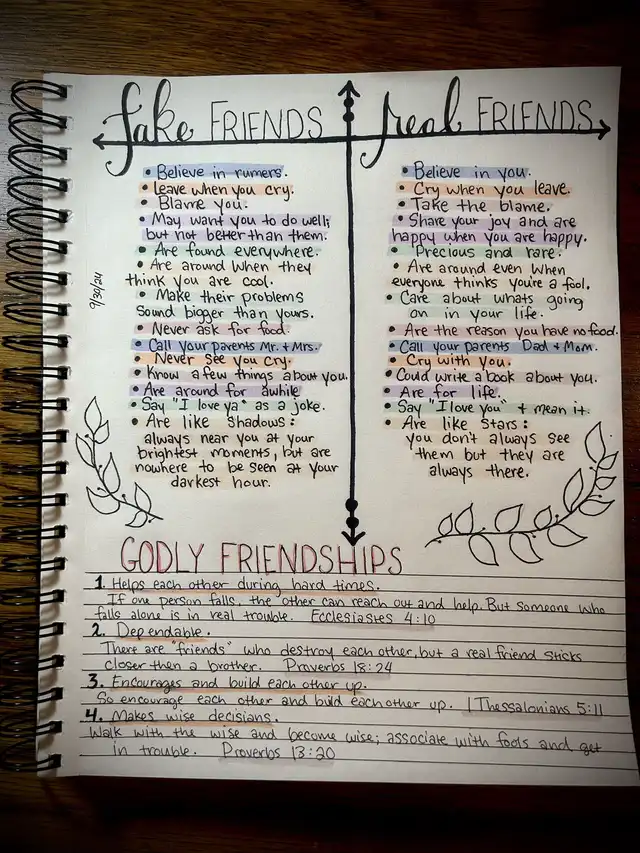 fake FRIENDS
• Believe in rumers.
• leave when you cry.
• Blame you.
• May want you to do well;
but not better than them.
• Are found everywhere.
• Are around when they
think you are cool.
• Make their problems
sound bigger than yours.
• Never ask for food.
• Call your parents Mr. + Mrs.
• Never see you cry.
• Know a few things about you.
• Are around for awhile
• Say "I love ya" as a joke.
• Are like shadows:
always near you at your
brightest moments, but are
nowhere to be seen at your
darkest hour.
9/30/24
real FRIENDS
• Believe in you.
• Cry when you leave.
• Take the blame.
• Share your joy and are
happy when you are happy.
• Precious and rare.
• Are around even when
everyone thinks you're a fool.
• Care about whats going
on in your life.
• Are the reason you have no food.
• Call your parents Dad + Mom.
• Cry with you.
• Could write a book about you.
• Are for life.
• Say "I love you" + mean it.
• Are like stars:
you don't always see
them but they are
always there.
GODLY FRIENDSHIPS
1. Helps each other during hard times.
If one person falls, the other can reach out and help. But someone who
falls alone is in real trouble. Ecclesiastes 4:10
2. Dependable.
There are "friends" who destroy each other, but a real friend sticks
closer then a brother. Proverbs 18:24
3. Encourages and build each other up.
So encourage each other and build each other up. 1 Thessalonians 5:11
4. Makes wise decisians.
Walk with the wise and become wise; associate with fools and get
in trouble. Proverbs 13:20